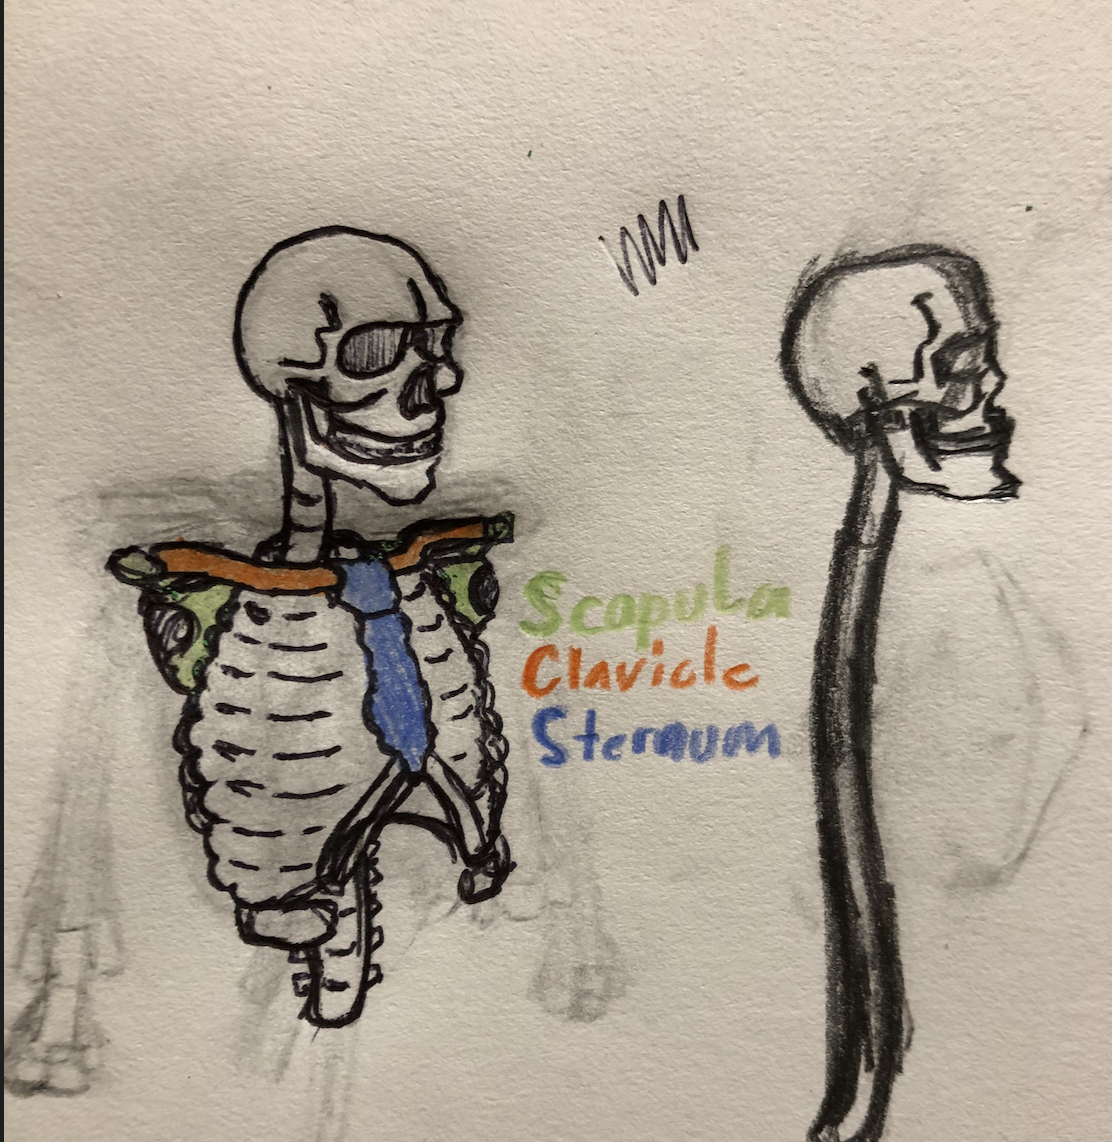 Scapula
Clavicle
Sternum